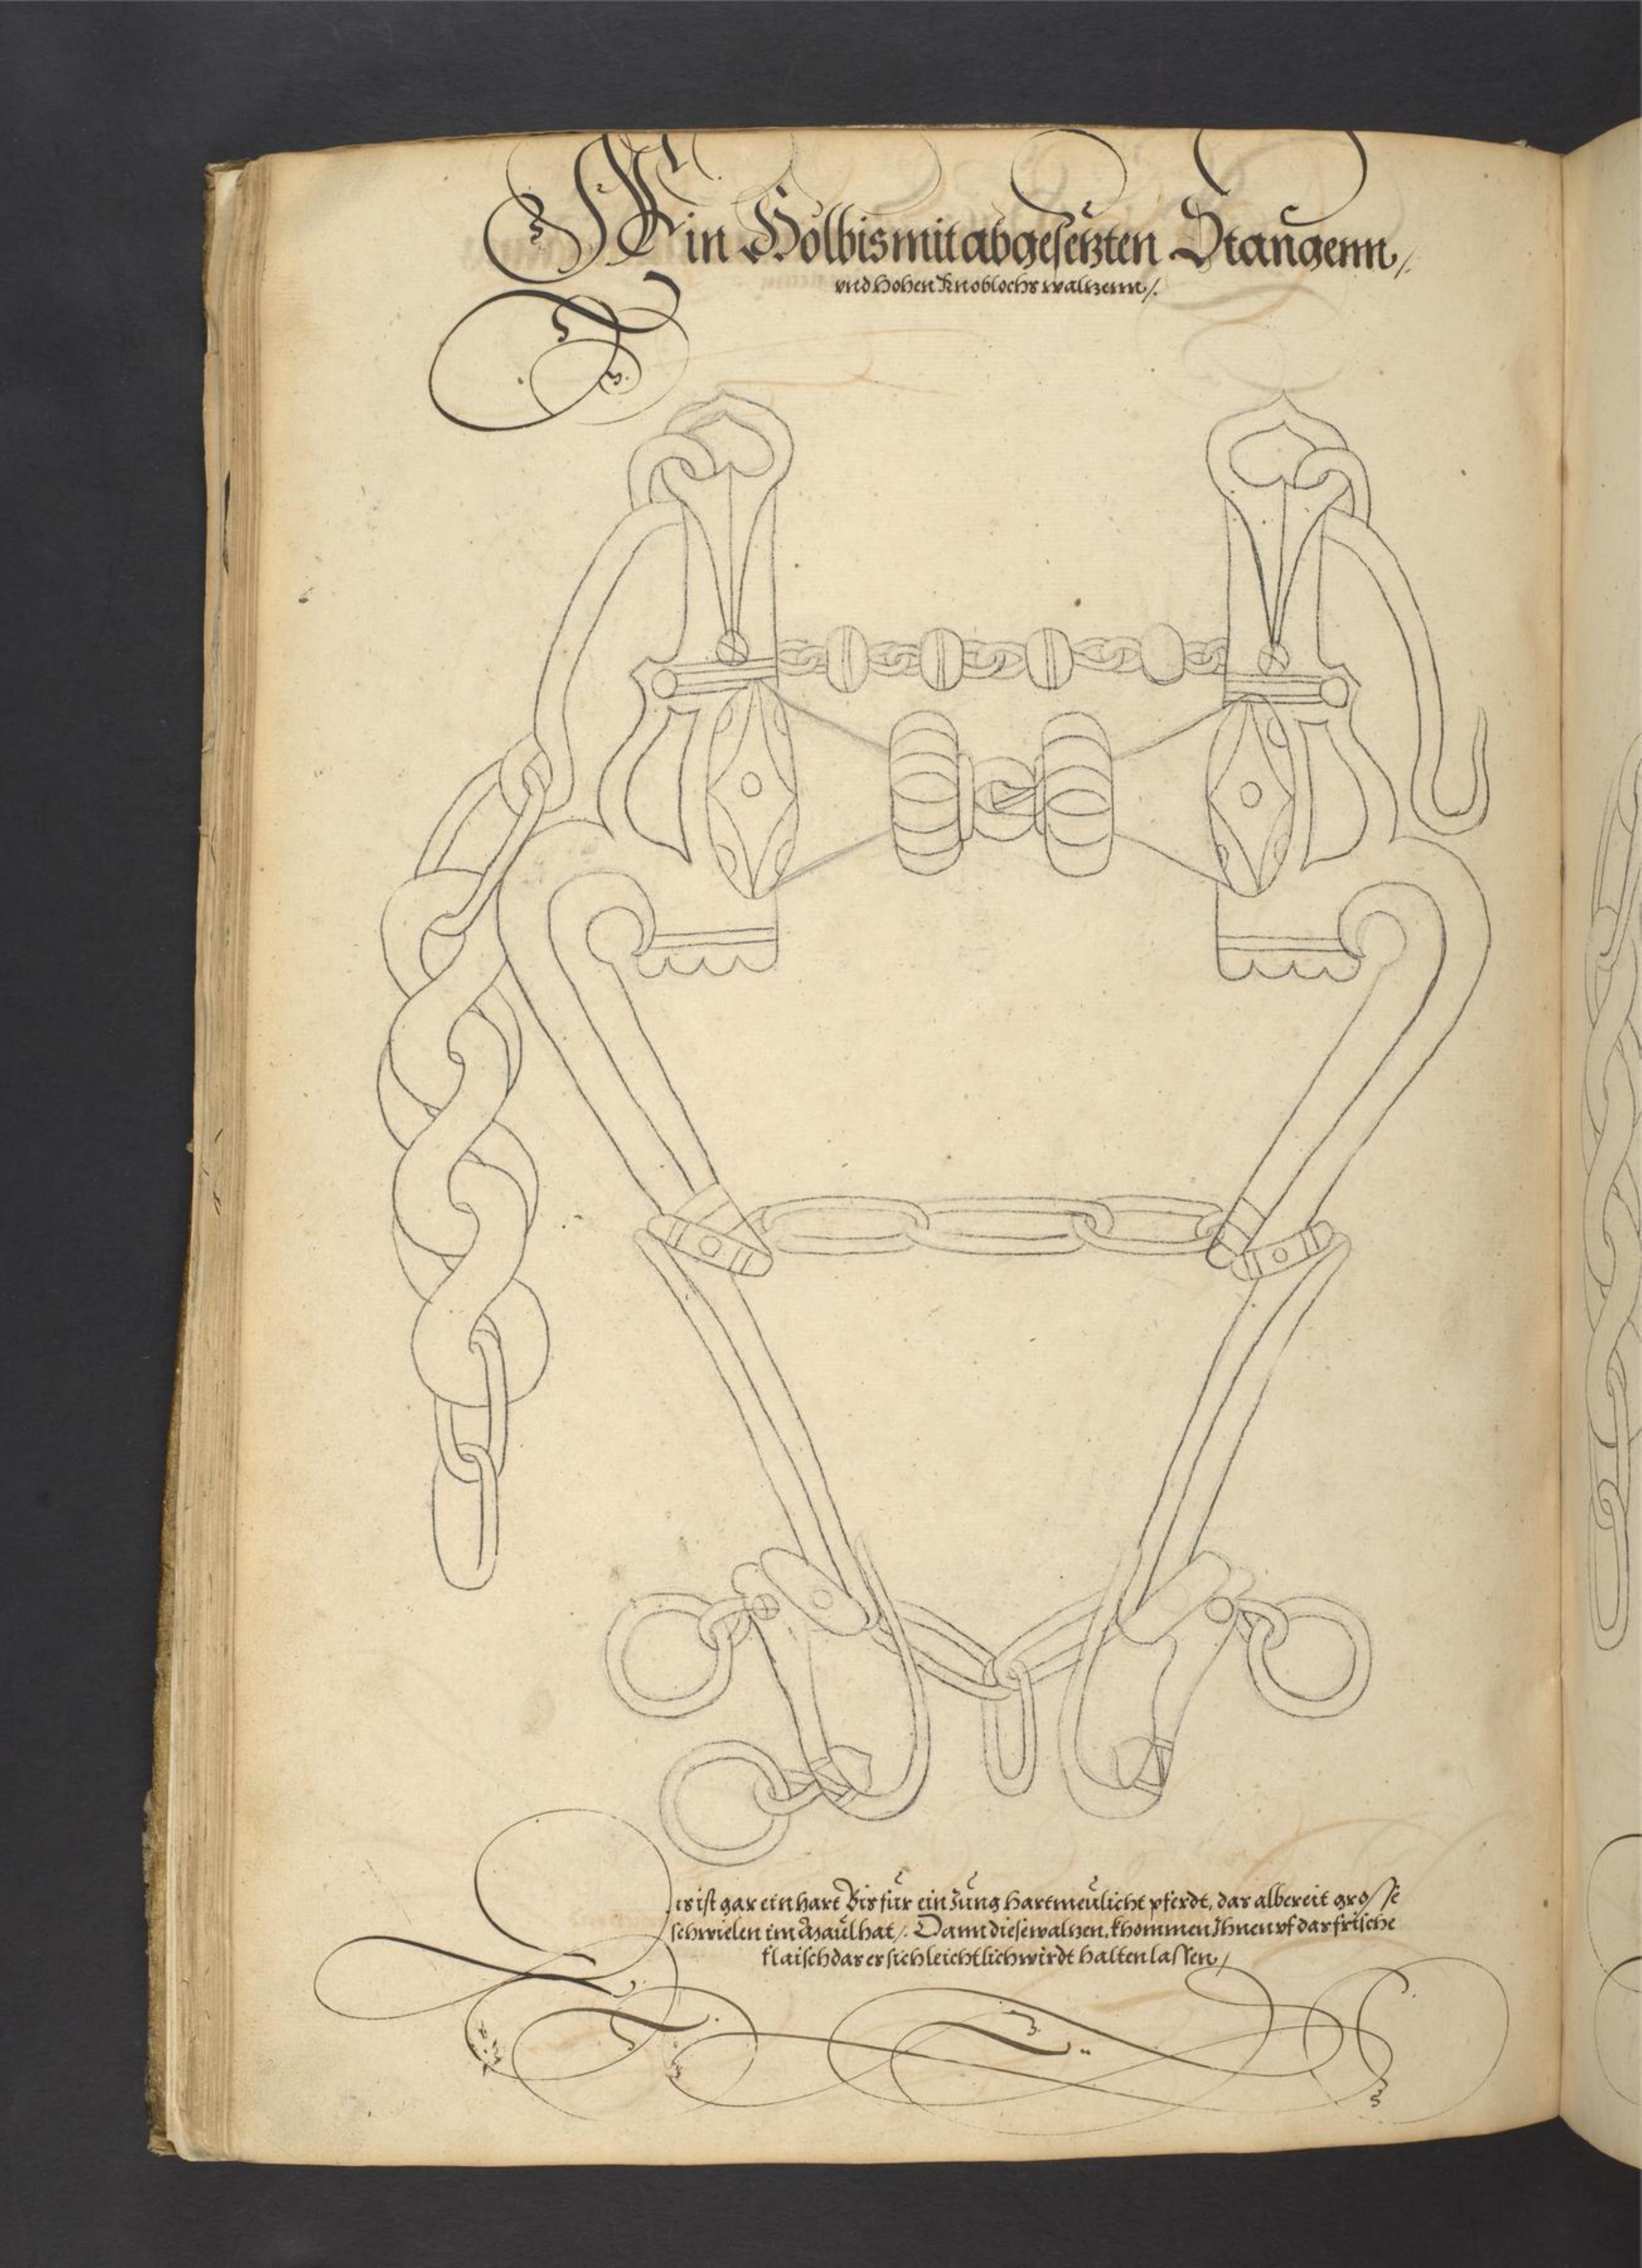 Ein Holbismit abgesetzten Stangenn /.
vnd Hohen Knoblochs waltzenn /.
is ist gar ein hart Bis für ein Jung hartmeulicht pferdt, das albereit grosse
schwielen im Maul hat /. Dann diese waltzen, khommen Ihnen vf das frische
flaisch das er sich leichtlich wirdt halten lassen /